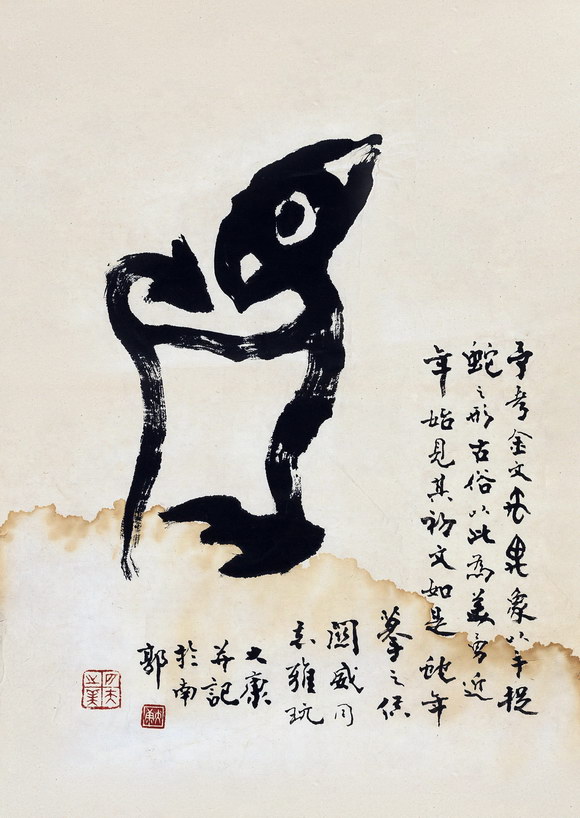 予考金文象以手捉
蛇之形古俗以此為美勇近
年始見其初文如是蛇年
摹之供
闗威同
志雅玩
大康
并記
於南
郭